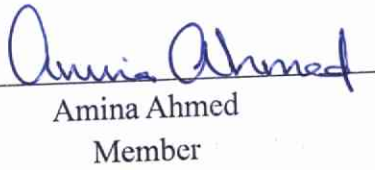 Amina Ahmed
Amina Ahmed
Member